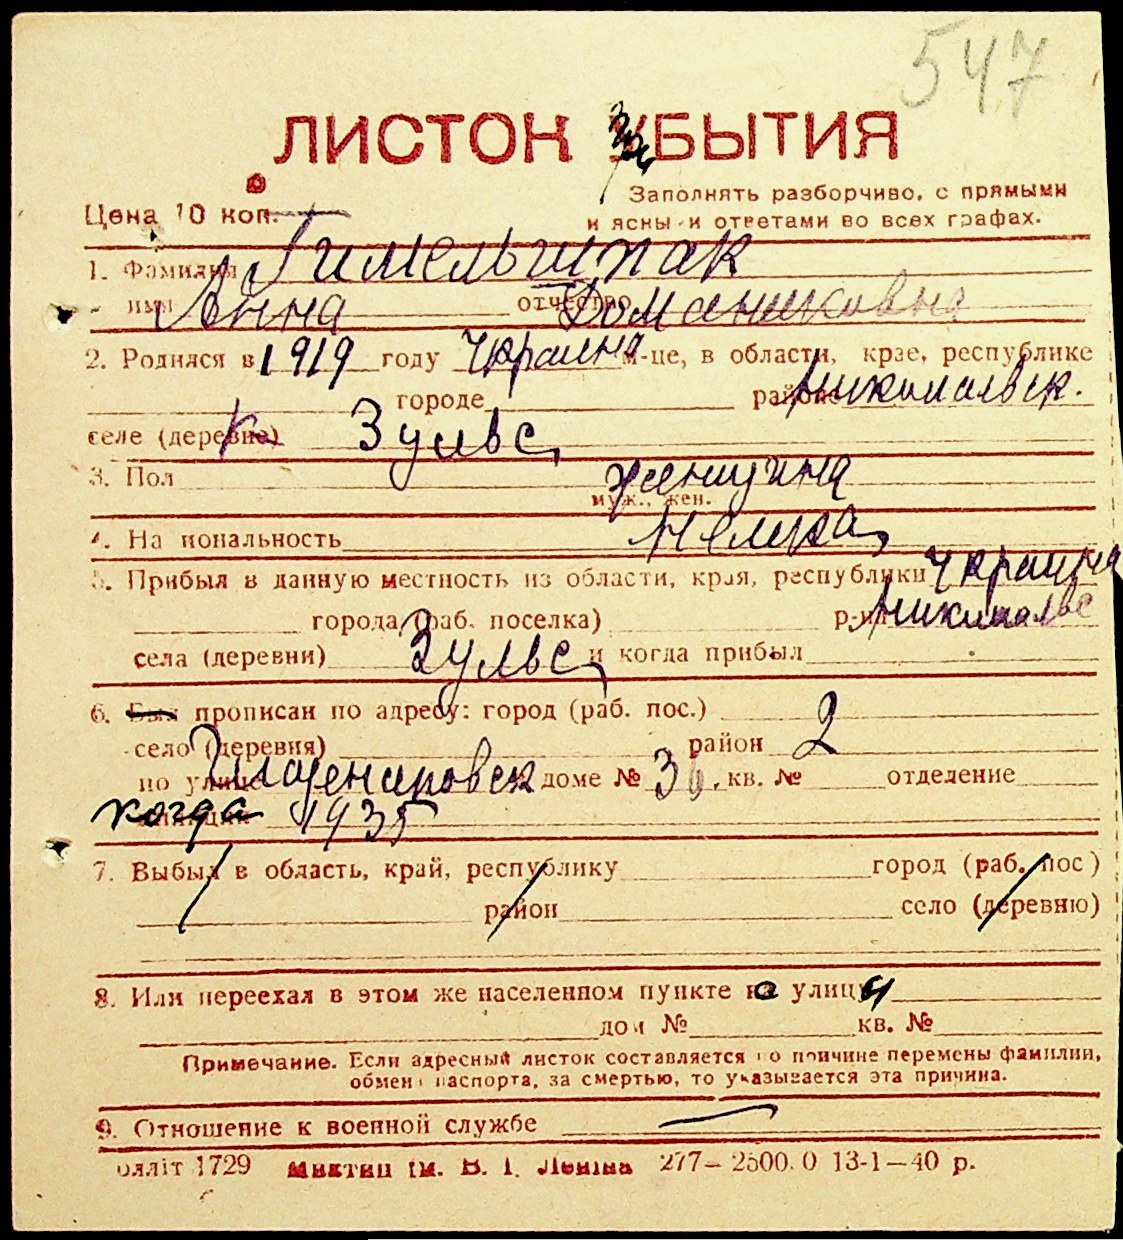 547
ЛИСТОК УБЫТИЯ
Цена 10 коп.
Заполнять разборчиво, с прямыми
и ясными ответами во всех графах.
1. Фамилия Гимельшпак
имя Анна отчество Доманиковна
2. Родился в 1919 году Украина м-це, в области, крае, республике
городе районе Николаевск.
селе (деревне) к. Зульс
3. Пол женщина
муж., жен.
4. Национальность Немка
5. Прибыл в данную местность из области, края, республики Украина
города (раб. поселка) р-на Николаевс
села (деревни) Зульс и когда прибыл
6. Был прописан по адресу: город (раб. пос.)
село (деревня) район 2
по улице доме № 36. кв. № отделение
когда 1935
7. Выбыл в область, край, республику город (раб. пос)
район село (деревню)
8. Или переехал в этом же населенном пункте на улицу
дом № кв. №
Примечание. Если адресный листок составляется по причине перемены фамилии,
обмена паспорта, за смертью, то указывается эта причина.
9. Отношение к военной службе
Облліт 1729 ім. В. І. Леніна 277—2500.0 13-1—40 р.